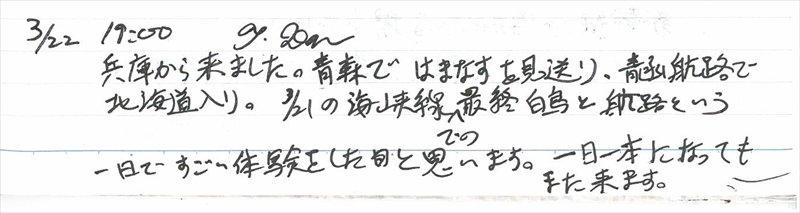 3/22 19:00
兵庫から来ました。青森で はまなすを見送り、青函航路で
北海道入り。 3/21の海峡線での最終白鳥と航路という
一日ですごい体験をした日と思います。一日一本になっても
また来ます。